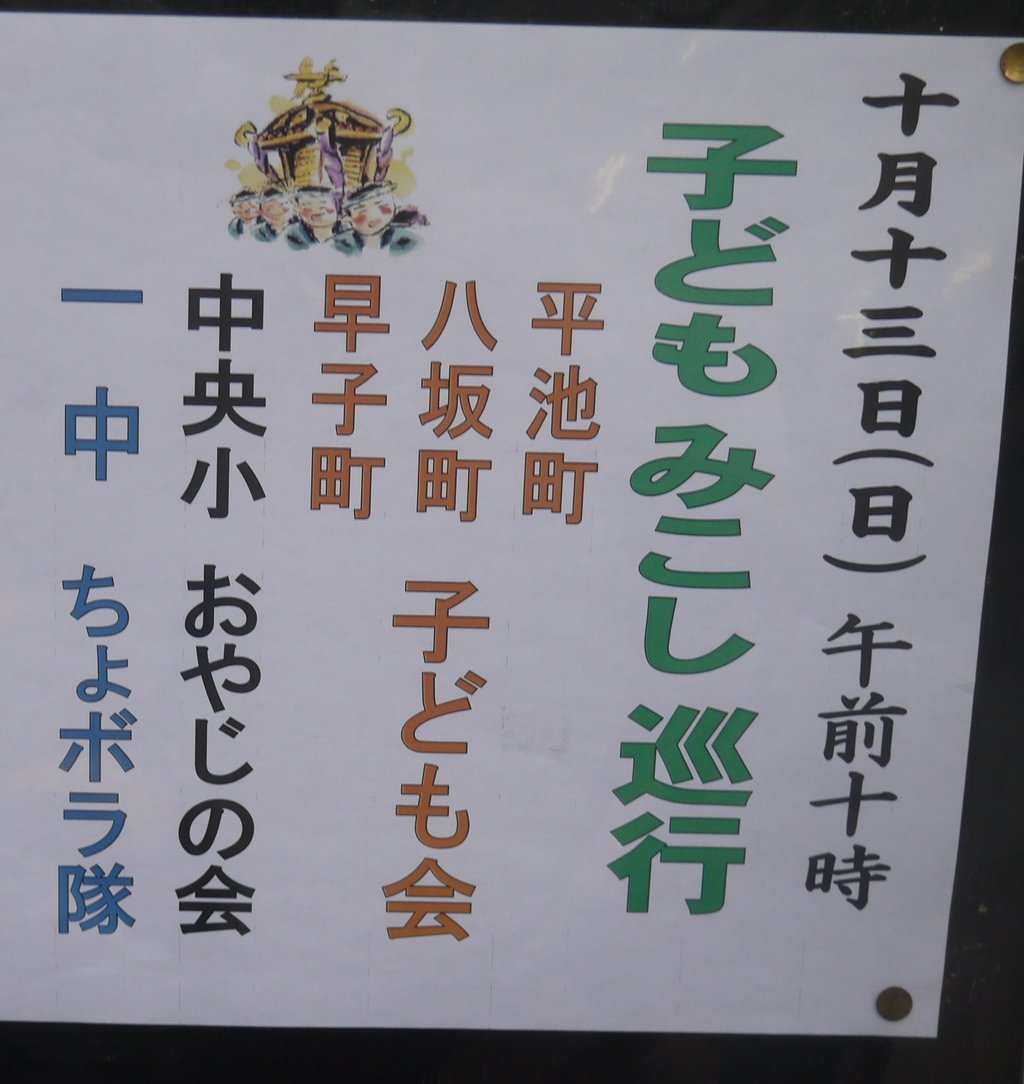 十月十三日(日) 午前十時
子どもみこし巡行
平池町
八坂町 子ども会
早子町
中央小 おやじの会
一中 ちょボラ隊